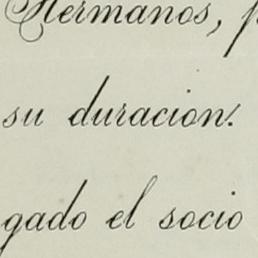 Hermanos,
su duracion.
gado el socio